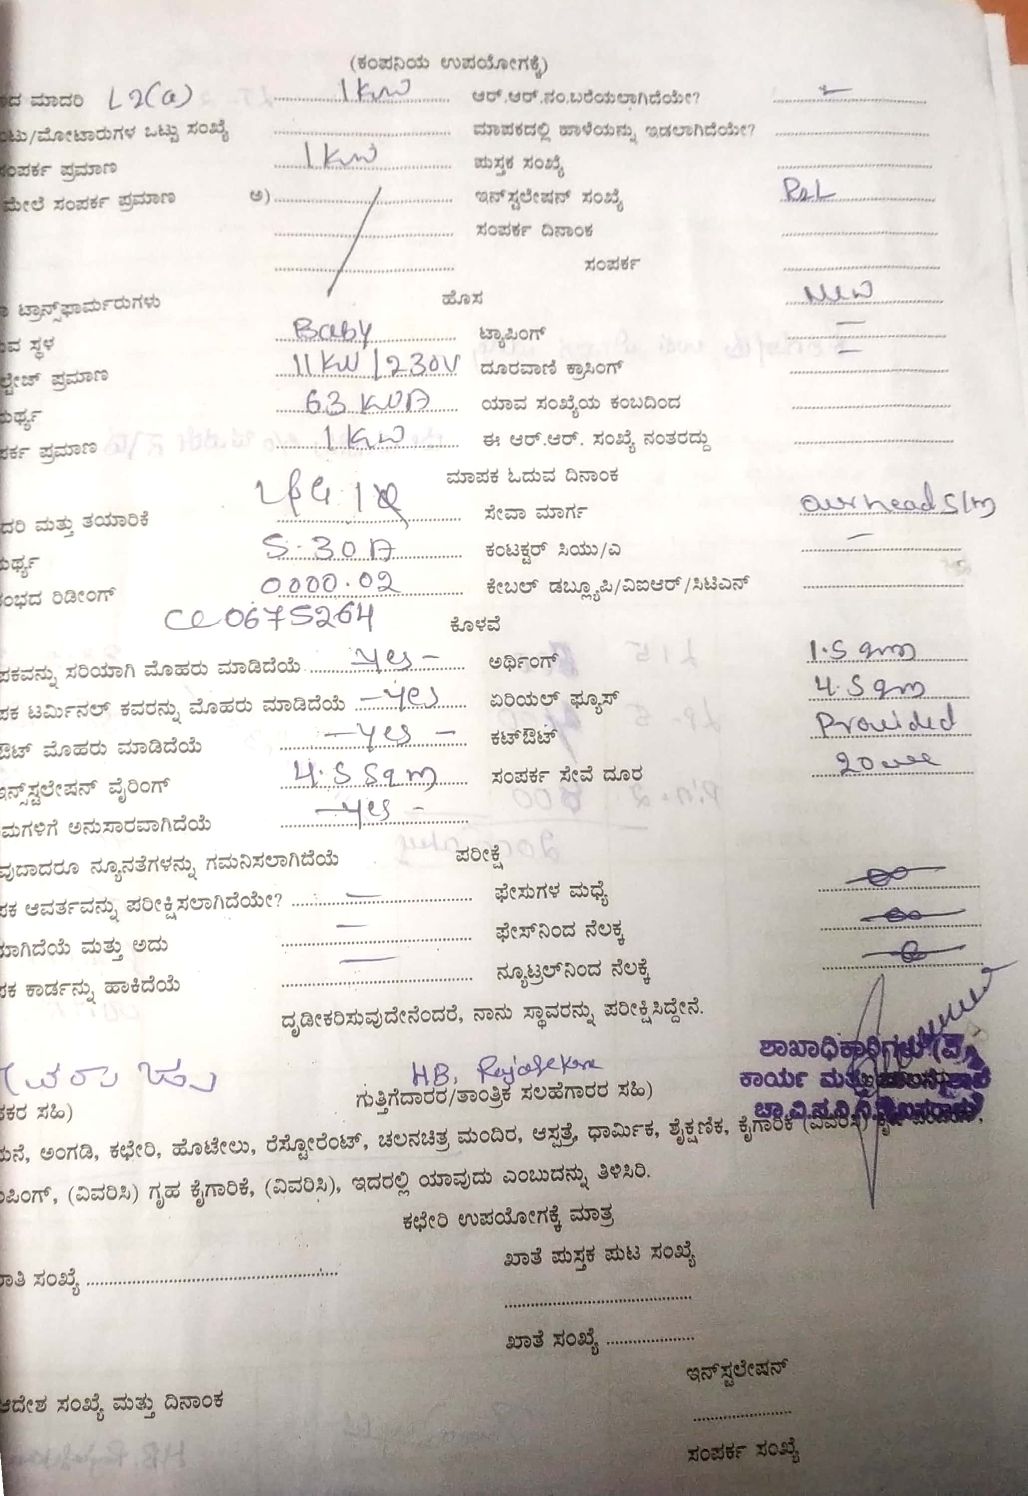 (ಕಂಪನಿಯ ಉಪಯೋಗಕ್ಕೆ)
ದ ಮಾದರಿ L2(a) 1kw ಆರ್.ಆರ್.ನಂ.ಬರೆಯಲಾಗಿದೆಯೇ? -
ಟು/ಮೋಟಾರುಗಳ ಒಟ್ಟು ಸಂಖ್ಯೆ ಮಾಪಕದಲ್ಲಿ ಹಾಳೆಯನ್ನು ಇಡಲಾಗಿದೆಯೇ?
ಸಂಪರ್ಕ ಪ್ರಮಾಣ 1kw ಪುಸ್ತಕ ಸಂಖ್ಯೆ
ಮೇಲೆ ಸಂಪರ್ಕ ಪ್ರಮಾಣ ಅ) ಇನ್‌ಸ್ಟಲೇಷನ್ ಸಂಖ್ಯೆ
ಸಂಪರ್ಕ ದಿನಾಂಕ
ಸಂಪರ್ಕ
ಟ್ರಾನ್ಸ್‌ಫಾರ್ಮರುಗಳು ಹೊಸ New
ವ ಸ್ಥಳ Baby ಟ್ಯಾಪಿಂಗ್ -
ಲ್ಟೇಜ್ ಪ್ರಮಾಣ 11KV/230V ದೂರವಾಣಿ ಕ್ರಾಸಿಂಗ್ -
ಮರ್ಥ್ಯ 63 KVA ಯಾವ ಸಂಖ್ಯೆಯ ಕಂಬದಿಂದ
ಪರ್ಕ ಪ್ರಮಾಣ 1kw ಈ ಆರ್.ಆರ್. ಸಂಖ್ಯೆ ನಂತರದ್ದು
ಮಾಪಕ ಓದುವ ದಿನಾಂಕ
ದರಿ ಮತ್ತು ತಯಾರಿಕೆ ಸೇವಾ ಮಾರ್ಗ
ಮರ್ಥ್ಯ 5-30A ಕಂಟಕ್ಟರ್ ಸಿಯು/ಎ -
ಂಭದ ರಿಡೀಂಗ್ 0000.02 ಕೇಬಲ್ ಡಬ್ಲ್ಯೂಪಿ/ವಿಐಆರ್/ಸಿಟಿಎನ್
0675264 ಕೊಳವೆ
ಪಕವನ್ನು ಸರಿಯಾಗಿ ಮೊಹರು ಮಾಡಿದೆಯೆ yes - ಅರ್ಥಿಂಗ್ 1.5 qmm
ಪಕ ಟರ್ಮಿನಲ್ ಕವರನ್ನು ಮೊಹರು ಮಾಡಿದೆಯೆ - yes ಏರಿಯಲ್ ಫ್ಯೂಸ್ 4.5 qmm
ಔಟ್ ಮೊಹರು ಮಾಡಿದೆಯೆ - yes - ಕಟ್‌ಔಟ್ Provided
ಇನ್ಸ್‌ಸ್ಟಲೇಷನ್ ವೈರಿಂಗ್ 4.5 Sqm ಸಂಪರ್ಕ ಸೇವೆ ದೂರ
ಮಗಳಿಗೆ ಅನುಸಾರವಾಗಿದೆಯೆ - yes -
ವುದಾದರೂ ನ್ಯೂನತೆಗಳನ್ನು ಗಮನಿಸಲಾಗಿದೆಯೆ ಪರೀಕ್ಷೆ
ಪಕ ಆವರ್ತವನ್ನು ಪರೀಕ್ಷಿಸಲಾಗಿದೆಯೇ? - ಫೇಸುಗಳ ಮಧ್ಯೆ
ಯಾಗಿದೆಯೆ ಮತ್ತು ಅದು - ಫೇಸ್‌ನಿಂದ ನೆಲಕ್ಕೆ
ಪಕ ಕಾರ್ಡನ್ನು ಹಾಕಿದೆಯೆ - ನ್ಯೂಟ್ರಲ್‌ನಿಂದ ನೆಲಕ್ಕೆ
ದೃಡೀಕರಿಸುವುದೇನೆಂದರೆ, ನಾನು ಸ್ಥಾವರನ್ನು ಪರೀಕ್ಷಿಸಿದ್ದೇನೆ.
ಶಾಖಾಧಿಕಾರಿಗಳು (ವಿ)
HB, ಕಾರ್ಯ ಮತ್ತು
ಕರ ಸಹಿ) ಗುತ್ತಿಗೆದಾರರ/ತಾಂತ್ರಿಕ ಸಲಹೆಗಾರರ ಸಹಿ)
ಮನೆ, ಅಂಗಡಿ, ಕಛೇರಿ, ಹೊಟೇಲು, ರೆಸ್ಟೋರೆಂಟ್, ಚಲನಚಿತ್ರ ಮಂದಿರ, ಆಸ್ಪತ್ರೆ, ಧಾರ್ಮಿಕ, ಶೈಕ್ಷಣಿಕ, ಕೈಗಾರಿಕೆ (ವಿವರಿಸಿ)
ಪಿಂಗ್, (ವಿವರಿಸಿ) ಗೃಹ ಕೈಗಾರಿಕೆ, (ವಿವರಿಸಿ), ಇದರಲ್ಲಿ ಯಾವುದು ಎಂಬುದನ್ನು ತಿಳಿಸಿರಿ.
ಕಛೇರಿ ಉಪಯೋಗಕ್ಕೆ ಮಾತ್ರ
ಖಾತೆ ಪುಸ್ತಕ ಪುಟ ಸಂಖ್ಯೆ
ಾತಿ ಸಂಖ್ಯೆ
ಖಾತೆ ಸಂಖ್ಯೆ
ಇನ್‌ಸ್ಟಲೇಷನ್
ಆದೇಶ ಸಂಖ್ಯೆ ಮತ್ತು ದಿನಾಂಕ
ಸಂಪರ್ಕ ಸಂಖ್ಯೆ